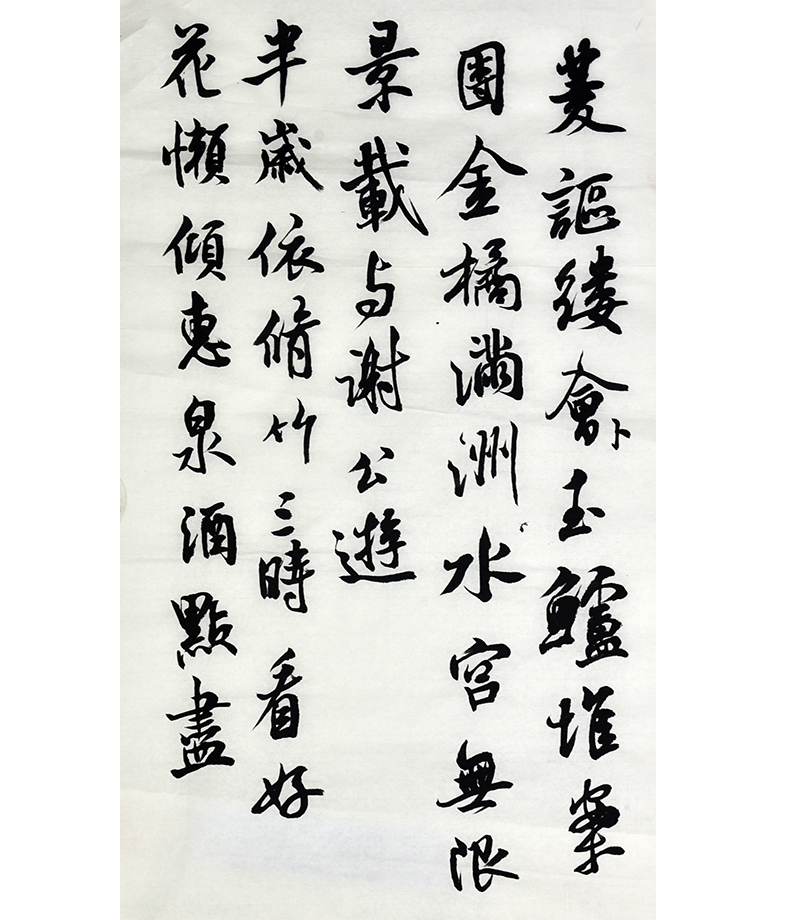 菱謳縷會卜玉鱸堆案
團金橘滿洲水宮無限
景載与謝公遊
半歲依脩竹三時看好
花懶傾惠泉酒點盡